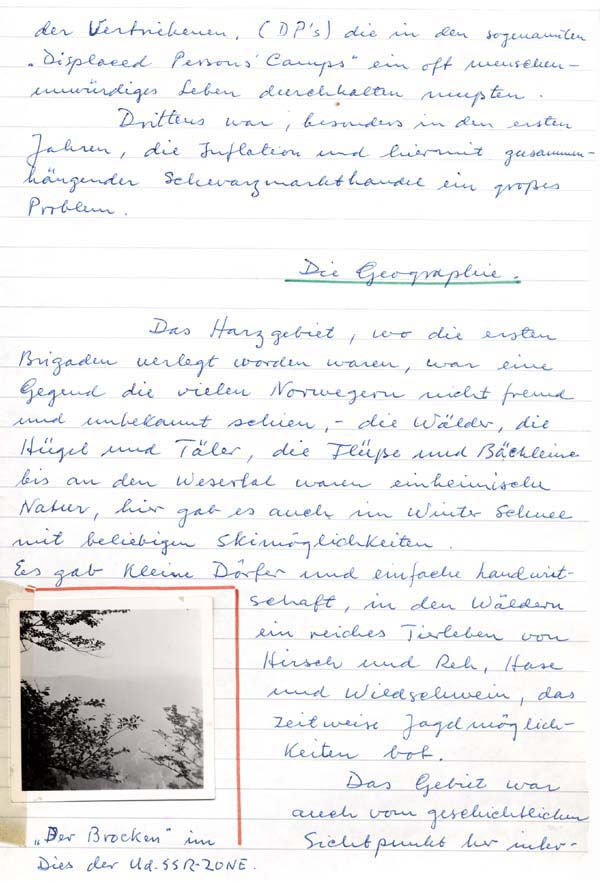 der Vertriebenen, (DP's) die in den sogenannten
„Displaced Persons' Camps" ein oft menschen-
unwürdiges Leben durchhalten mußten.
Drittens war, besonders in den ersten
Jahren, die Inflation und hiermit zusammen-
hängender Schwarzmarkthandel ein großes
Problem.
Die Geographie.
Das Harzgebiet, wo die ersten
Brigaden verlegt worden waren, war eine
Gegend die vielen Norwegern nicht fremd
und unbekannt schien, - die Wälder, die
Hügel und Täler, die Flüße und Bächleine
bis an den Wesertal waren einheimische
Natur, hier gab es auch im Winter Schnee
mit beliebigen Skimöglichkeiten.
Es gab kleine Dörfer und einfache Landwirt-
schaft, in den Wäldern
ein reiches Tierleben von
Hirsch und Reh, Hase
und Wildschwein, das
zeitweise Jagdmöglich-
keiten bot.
Das Gebiet war
auch vom geschichtlichen
Sichtpunkt her inter-
„Der Brocken" im
Dies der Ud.SSR-ZONE.